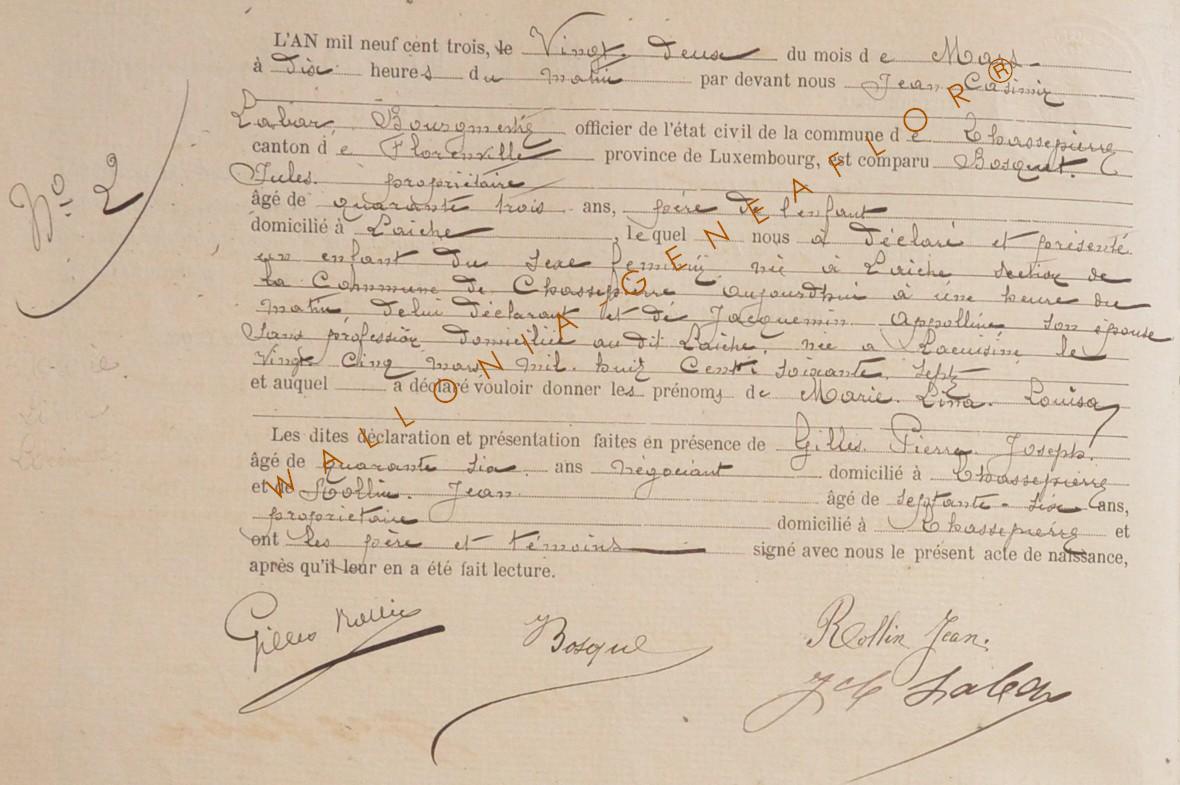 N° 2
L'AN mil neuf cent trois, le Vingt deux du mois d e Mars
à Dix heures du matin par devant nous Jean Casimir
Labar, Bourgmestre officier de l'état civil de la commune d e Chassepierre
canton d e Florenville province de Luxembourg, est comparu Bosquet
Jules propriétaire
âgé de quarante trois ans, père de l'enfant
domicilié à Laiche, lequel nous a déclaré et présenté
un enfant du sexe féminin née à Laiche section de
la Commune de Chassepierre aujourdhui à une heure du
matin, de lui déclarant et de Jacquemin Appolline, son épouse
sans profession, domiciliée au dit Laiche, née a Lacuisine le
Vingt Cinq mars mil huit Cent soixante Sept
et auquel a déclaré vouloir donner les prénoms de Marie. Lina. Louisa
Les dites déclaration et présentation faites en présence de Gilles Pierre Joseph.
âgé de quarante six ans négociant domicilié à Chassepierre
et de Rollin Jean âgé de septante-six ans,
propriétaire domicilié à Chassepierre et
ont les père et témoins signé avec nous le présent acte de naissance,
après qu'il leur en a été fait lecture.
Gilles Rollin Bosquet Rollin Jean.
Labar
WALLONIA-GENEAFLOR®